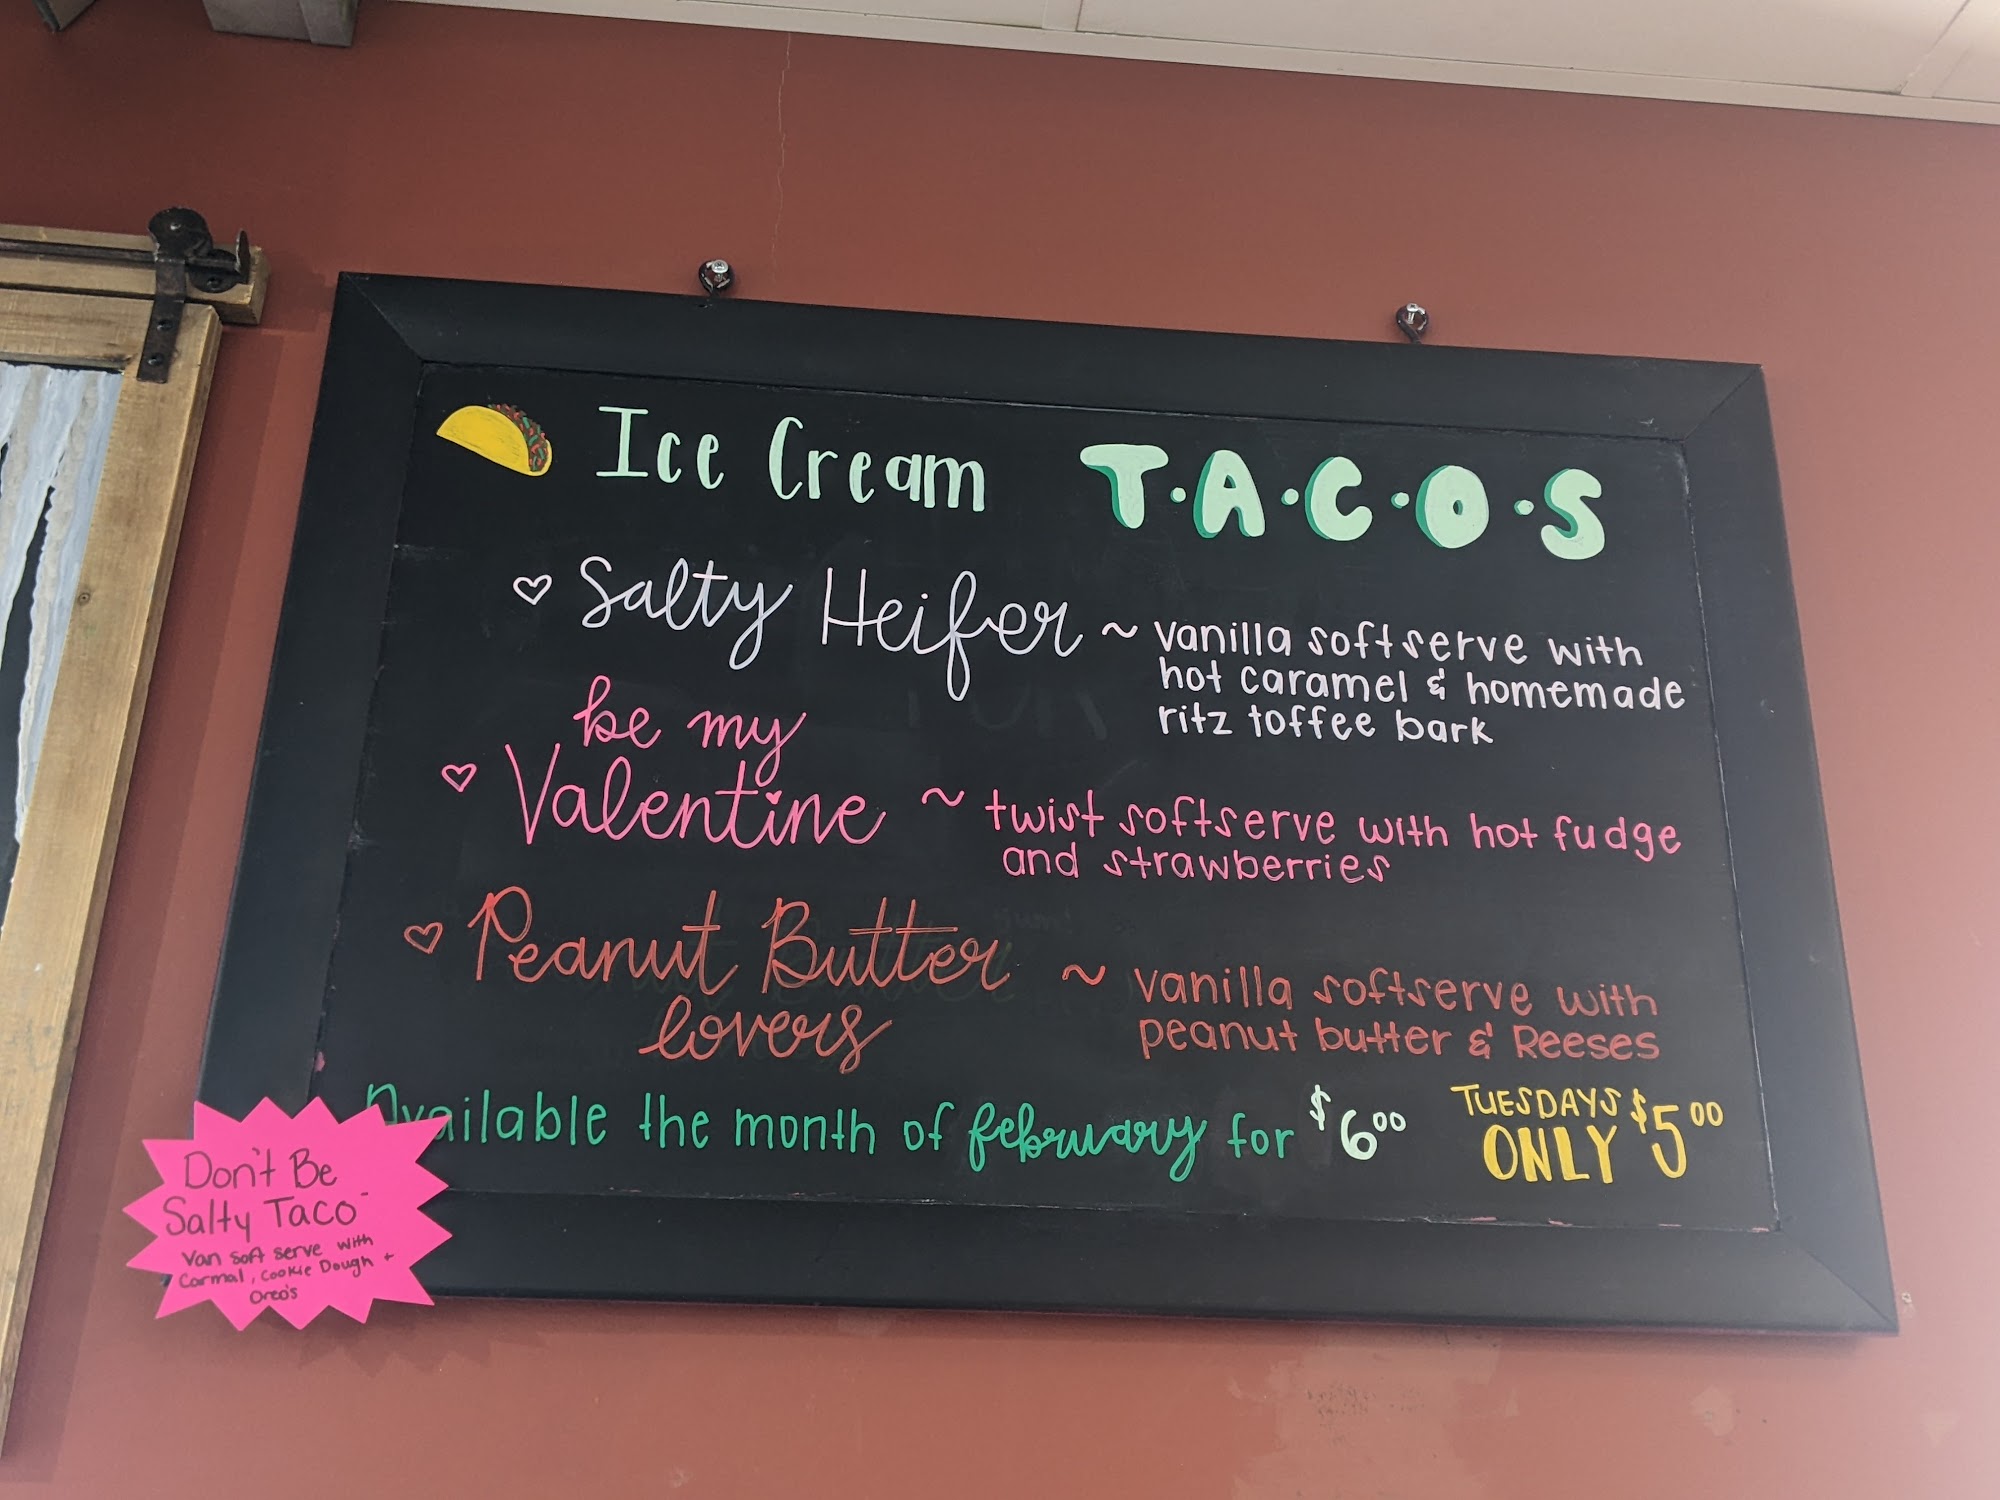 Ice Cream T·A·C·O·S
Salty Heifer ~ vanilla softserve with
hot caramel & homemade
ritz toffee bark
be my
Valentine ~ twist softserve with hot fudge
and strawberries
Peanut Butter
lovers ~ vanilla softserve with
peanut butter & Reeses
Available the month of february for $6.00
TUESDAYS
ONLY $5.00
Don't Be
Salty Taco-
Van soft serve with
Carmal, Cookie Dough +
Oreo's